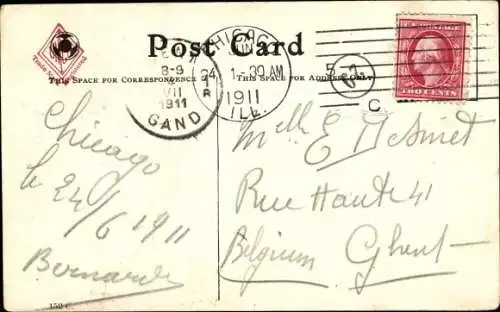 Post Card
THIS SPACE FOR CORRESPONDENCE
THIS SPACE FOR ADDRESS ONLY
CHICAGO
JUN
24
1-30 AM
1911
ILL.
8-9
VII
1911
GAND
TWO CENTS
C
Chicago
le 24/6 1911
Bernard
Melle E De Smet
Rue Haute 41
Belgium Ghent
152 C.